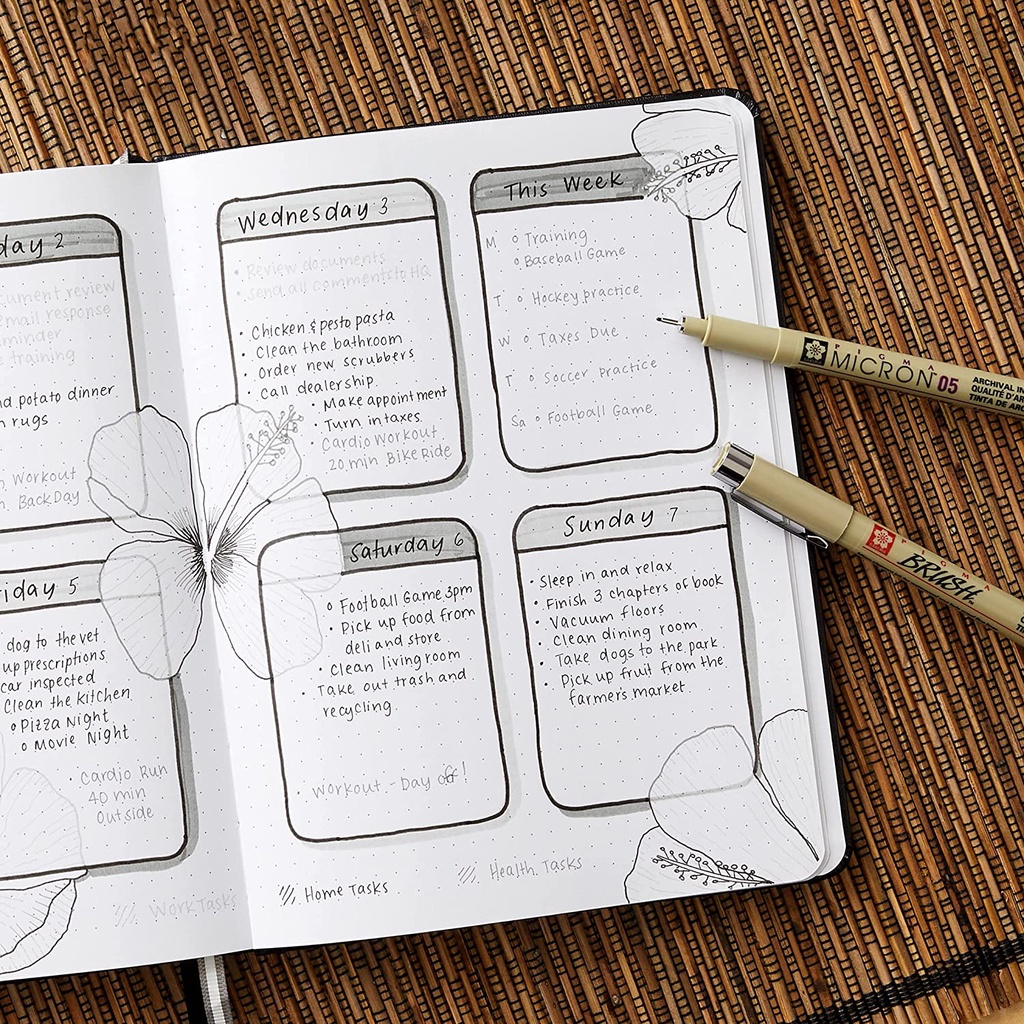 day 2
cument review
email response
minder
e training
nd potato dinner
n rugs
Workout
Back Day
Wednesday 3
• Review documents
• send all comments to HQ
• Chicken & pesto pasta
• Clean the bathroom
• Order new scrubbers
• Call dealership.
• Make appointment
• Turn in taxes
Cardio Workout
20 min Bike Ride
This Week
M o Training
o Baseball Game
T o Hockey practice
W o Taxes Due
T o Soccer practice
Sa o Football Game.
riday 5
dog to the vet
up prescriptions
car inspected
Clean the Kitchen
o Pizza Night
o Movie Night
• Cardio Run
40 min
Outside
Saturday 6
o Football Game 3pm
• Pick up food from
deli and store
• Clean living room
• Take out trash and
recycling.
• Workout - Day off!
Sunday 7
• Sleep in and relax
• Finish 3 chapters of book
• Vacuum floors
• Clean dining room
• Take dogs to the park
• Pick up fruit from the
farmer's market.
Work Tasks
Home Tasks
Health Tasks
PIGMA
MICRON 05
ARCHIVAL IN
QUALITÉ D'AR
TINTA DE AR
PIGMA
BRUSH